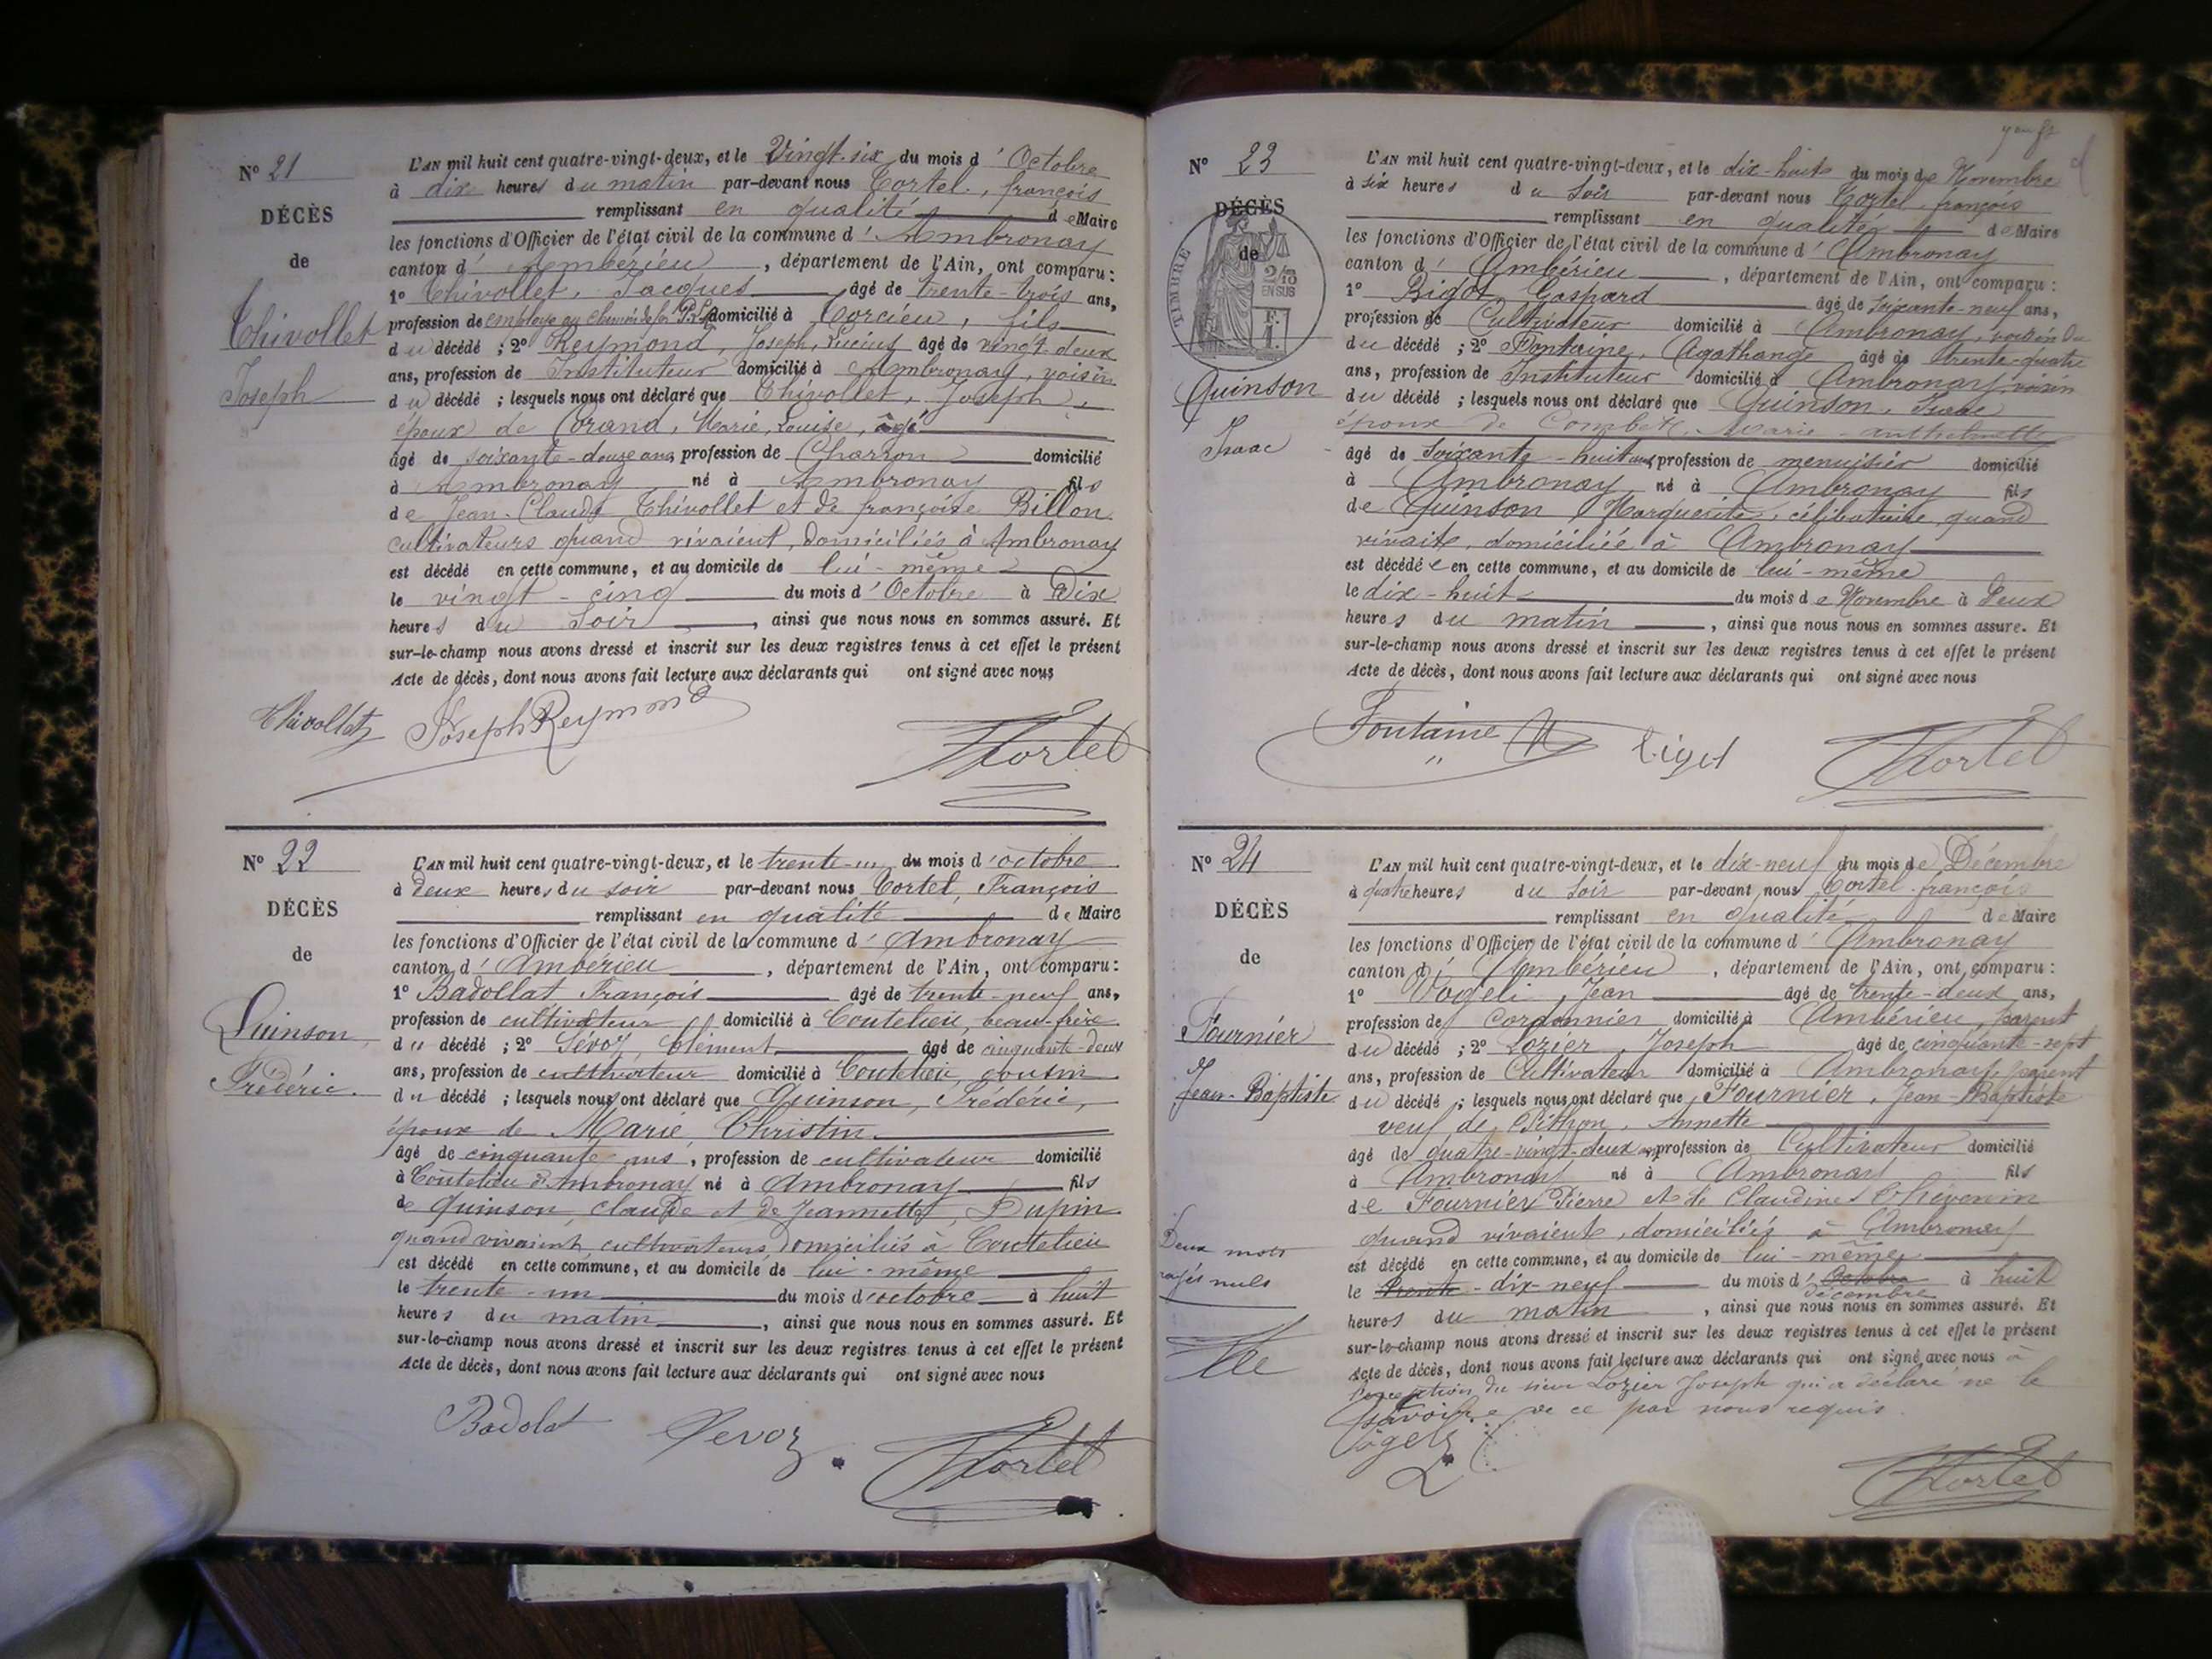 N° 21
DÉCÈS
de
Thivollet
Joseph
L'AN mil huit cent quatre-vingt-deux, et le Vingt-six du mois d'Octobre
à dix heures du matin par-devant nous Tortel, françois
remplissant en qualité de Maire
les fonctions d'Officier de l'état civil de la commune d'Ambronay
canton d'Ambérieu, département de l'Ain, ont comparu:
1° Thivollet, Jacques âgé de trente-trois ans,
profession de employé au chemin de fer domicilié à Torcieu, fils
du décédé ; 2° Reymond, Joseph, Lucius âgé de vingt-deux
ans, profession de Instituteur domicilié à Ambronay, voisin
du décédé ; lesquels nous ont déclaré que Thivollet, Joseph,
époux de Corand, Marie, Louise, âgé
âgé de soixante-douze ans, profession de Charron domicilié
à Ambronay né à Ambronay fils
de Jean-Claude Thivollet et de françoise Billon
cultivateurs quand vivaient, domiciliés à Ambronay
est décédé en cette commune, et au domicile de lui-même
le vingt-cinq du mois d'Octobre à Dix
heures du Soir, ainsi que nous nous en sommes assuré. Et
sur-le-champ nous avons dressé et inscrit sur les deux registres tenus à cet effet le présent
Acte de décès, dont nous avons fait lecture aux déclarants qui ont signé avec nous
Thivollet Joseph Reymond Tortel
N° 22
DÉCÈS
de
Quinson
Frédéric.
L'AN mil huit cent quatre-vingt-deux, et le trente-un du mois d'octobre
à deux heures du soir par-devant nous Tortel, François
remplissant en qualité de Maire
les fonctions d'Officier de l'état civil de la commune d'Ambronay
canton d'Ambérieu, département de l'Ain, ont comparu:
1° Badollat François âgé de trente-neuf ans,
profession de cultivateur domicilié à Coutelieu, beau-frère
du décédé ; 2° Sevoz, Clément âgé de cinquante-deux
ans, profession de cultivateur domicilié à Coutelieu, cousin
du décédé ; lesquels nous ont déclaré que Quinson, Frédéric,
époux de Marie, Christin
âgé de cinquante ans, profession de cultivateur domicilié
à Coutelieu d'Ambronay né à Ambronay fils
de Quinson, Claude et de Jeannette, Dupin
quand vivaient, cultivateurs, domiciliés à Coutelieu
est décédé en cette commune, et au domicile de lui-même
le trente-un du mois d'octobre à huit
heures du matin, ainsi que nous nous en sommes assuré. Et
sur-le-champ nous avons dressé et inscrit sur les deux registres tenus à cet effet le présent
Acte de décès, dont nous avons fait lecture aux déclarants qui ont signé avec nous
Badolat Sevoz Tortel
N° 23
DÉCÈS
de
TIMBRE
2/10
EN SUS
F.
1.
Quinson
Isaac
L'AN mil huit cent quatre-vingt-deux, et le dix-huit du mois de Novembre
à six heures du Soir par-devant nous Tortel, françois
remplissant en qualité de Maire
les fonctions d'Officier de l'état civil de la commune d'Ambronay
canton d'Ambérieu, département de l'Ain, ont comparu :
1° Bigot, Gaspard âgé de soixante-neuf ans,
profession de Cultivateur domicilié à Ambronay, voisin du
du décédé ; 2° Fontaine, Agathange âgé de trente-quatre
ans, profession de Instituteur domicilié à Ambronay, voisin
du décédé ; lesquels nous ont déclaré que Quinson, Isaac
époux de Combet, Marie-anthelmette
âgé de soixante-huit ans, profession de menuisier domicilié
à Ambronay né à Ambronay fils
de Quinson Marguerite, célibataire quand
vivait, domiciliée à Ambronay
est décédé en cette commune, et au domicile de lui-même
le dix-huit du mois de Novembre à Deux
heures du matin, ainsi que nous nous en sommes assure. Et
sur-le-champ nous avons dressé et inscrit sur les deux registres tenus à cet effet le présent
Acte de décès, dont nous avons fait lecture aux déclarants qui ont signé avec nous
Fontaine A Bigot Tortel
N° 24
DÉCÈS
de
Fournier
Jean-Baptiste
Deux mots
rayés nuls
L'AN mil huit cent quatre-vingt-deux, et le dix-neuf du mois de Décembre
à quatre heures du Soir par-devant nous Tortel, françois
remplissant en qualité de Maire
les fonctions d'Officier de l'état civil de la commune d'Ambronay
canton d'Ambérieu, département de l'Ain, ont comparu :
1° Vogeli, Jean âgé de trente-deux ans,
profession de Cordonnier domicilié à Ambérieu, parent
du décédé ; 2° Lozier, Joseph âgé de cinquante-sept
ans, profession de Cultivateur domicilié à Ambronay, parent
du décédé ; lesquels nous ont déclaré que Fournier, Jean-Baptiste
veuf de Pithon, Annette
âgé de quatre-vingt-deux ans, profession de Cultivateur domicilié
à Ambronay né à Ambronay fils
de Fournier Pierre et de Claudine Thévenin
quand vivaient, domiciliés à Ambronay
est décédé en cette commune, et au domicile de lui-même
le trente-dix-neuf du mois d'Octobre décembre à huit
heures du matin, ainsi que nous nous en sommes assuré. Et
sur-le-champ nous avons dressé et inscrit sur les deux registres tenus à cet effet le présent
Acte de décès, dont nous avons fait lecture aux déclarants qui ont signé avec nous à
l'exception du sieur Lozier Joseph qui a déclaré ne le
savoir de ce par nous requis.
Vogely Tortel